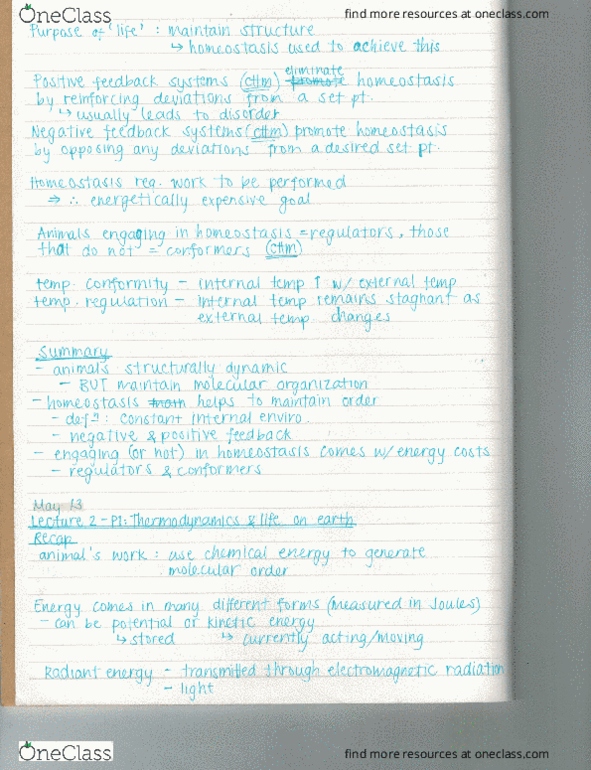 OneClass
find more resources at oneclass.com
Purpose of 'life' : maintain structure
↳ homeostasis used to achieve this
eliminate
Positive feedback systems (cttm) promote homeostasis
by reinforcing deviations from a set pt.
↳ usually leads to disorder
Negative feedback systems (cttm) promote homeostasis
by opposing any deviations from a desired set pt.
Homeostasis req. work to be performed
⇒ ∴ energetically expensive goal
Animals engaging in homeostasis = regulators, those
that do not = conformers (cttm)
temp. conformity - internal temp ↑ w/ external temp
temp. regulation - internal temp remains stagnant as
external temp changes
Summary
- animals structurally dynamic
- BUT maintain molecular organization
- homeostasis helps to maintain order
- defⁿ: constant internal enviro.
- negative & positive feedback
- engaging (or not) in homeostasis comes w/ energy costs
- regulators & conformers
May 13
Lecture 2 - P1: Thermodynamics & life on earth
Recap
animal's work : use chemical energy to generate
molecular order
Energy comes in many different forms (measured in Joules)
- can be potential or kinetic energy
↳ stored ↳ currently acting/moving
Radiant energy - transmitted through electromagnetic radiation
- light
OneClass
find more resources at oneclass.com